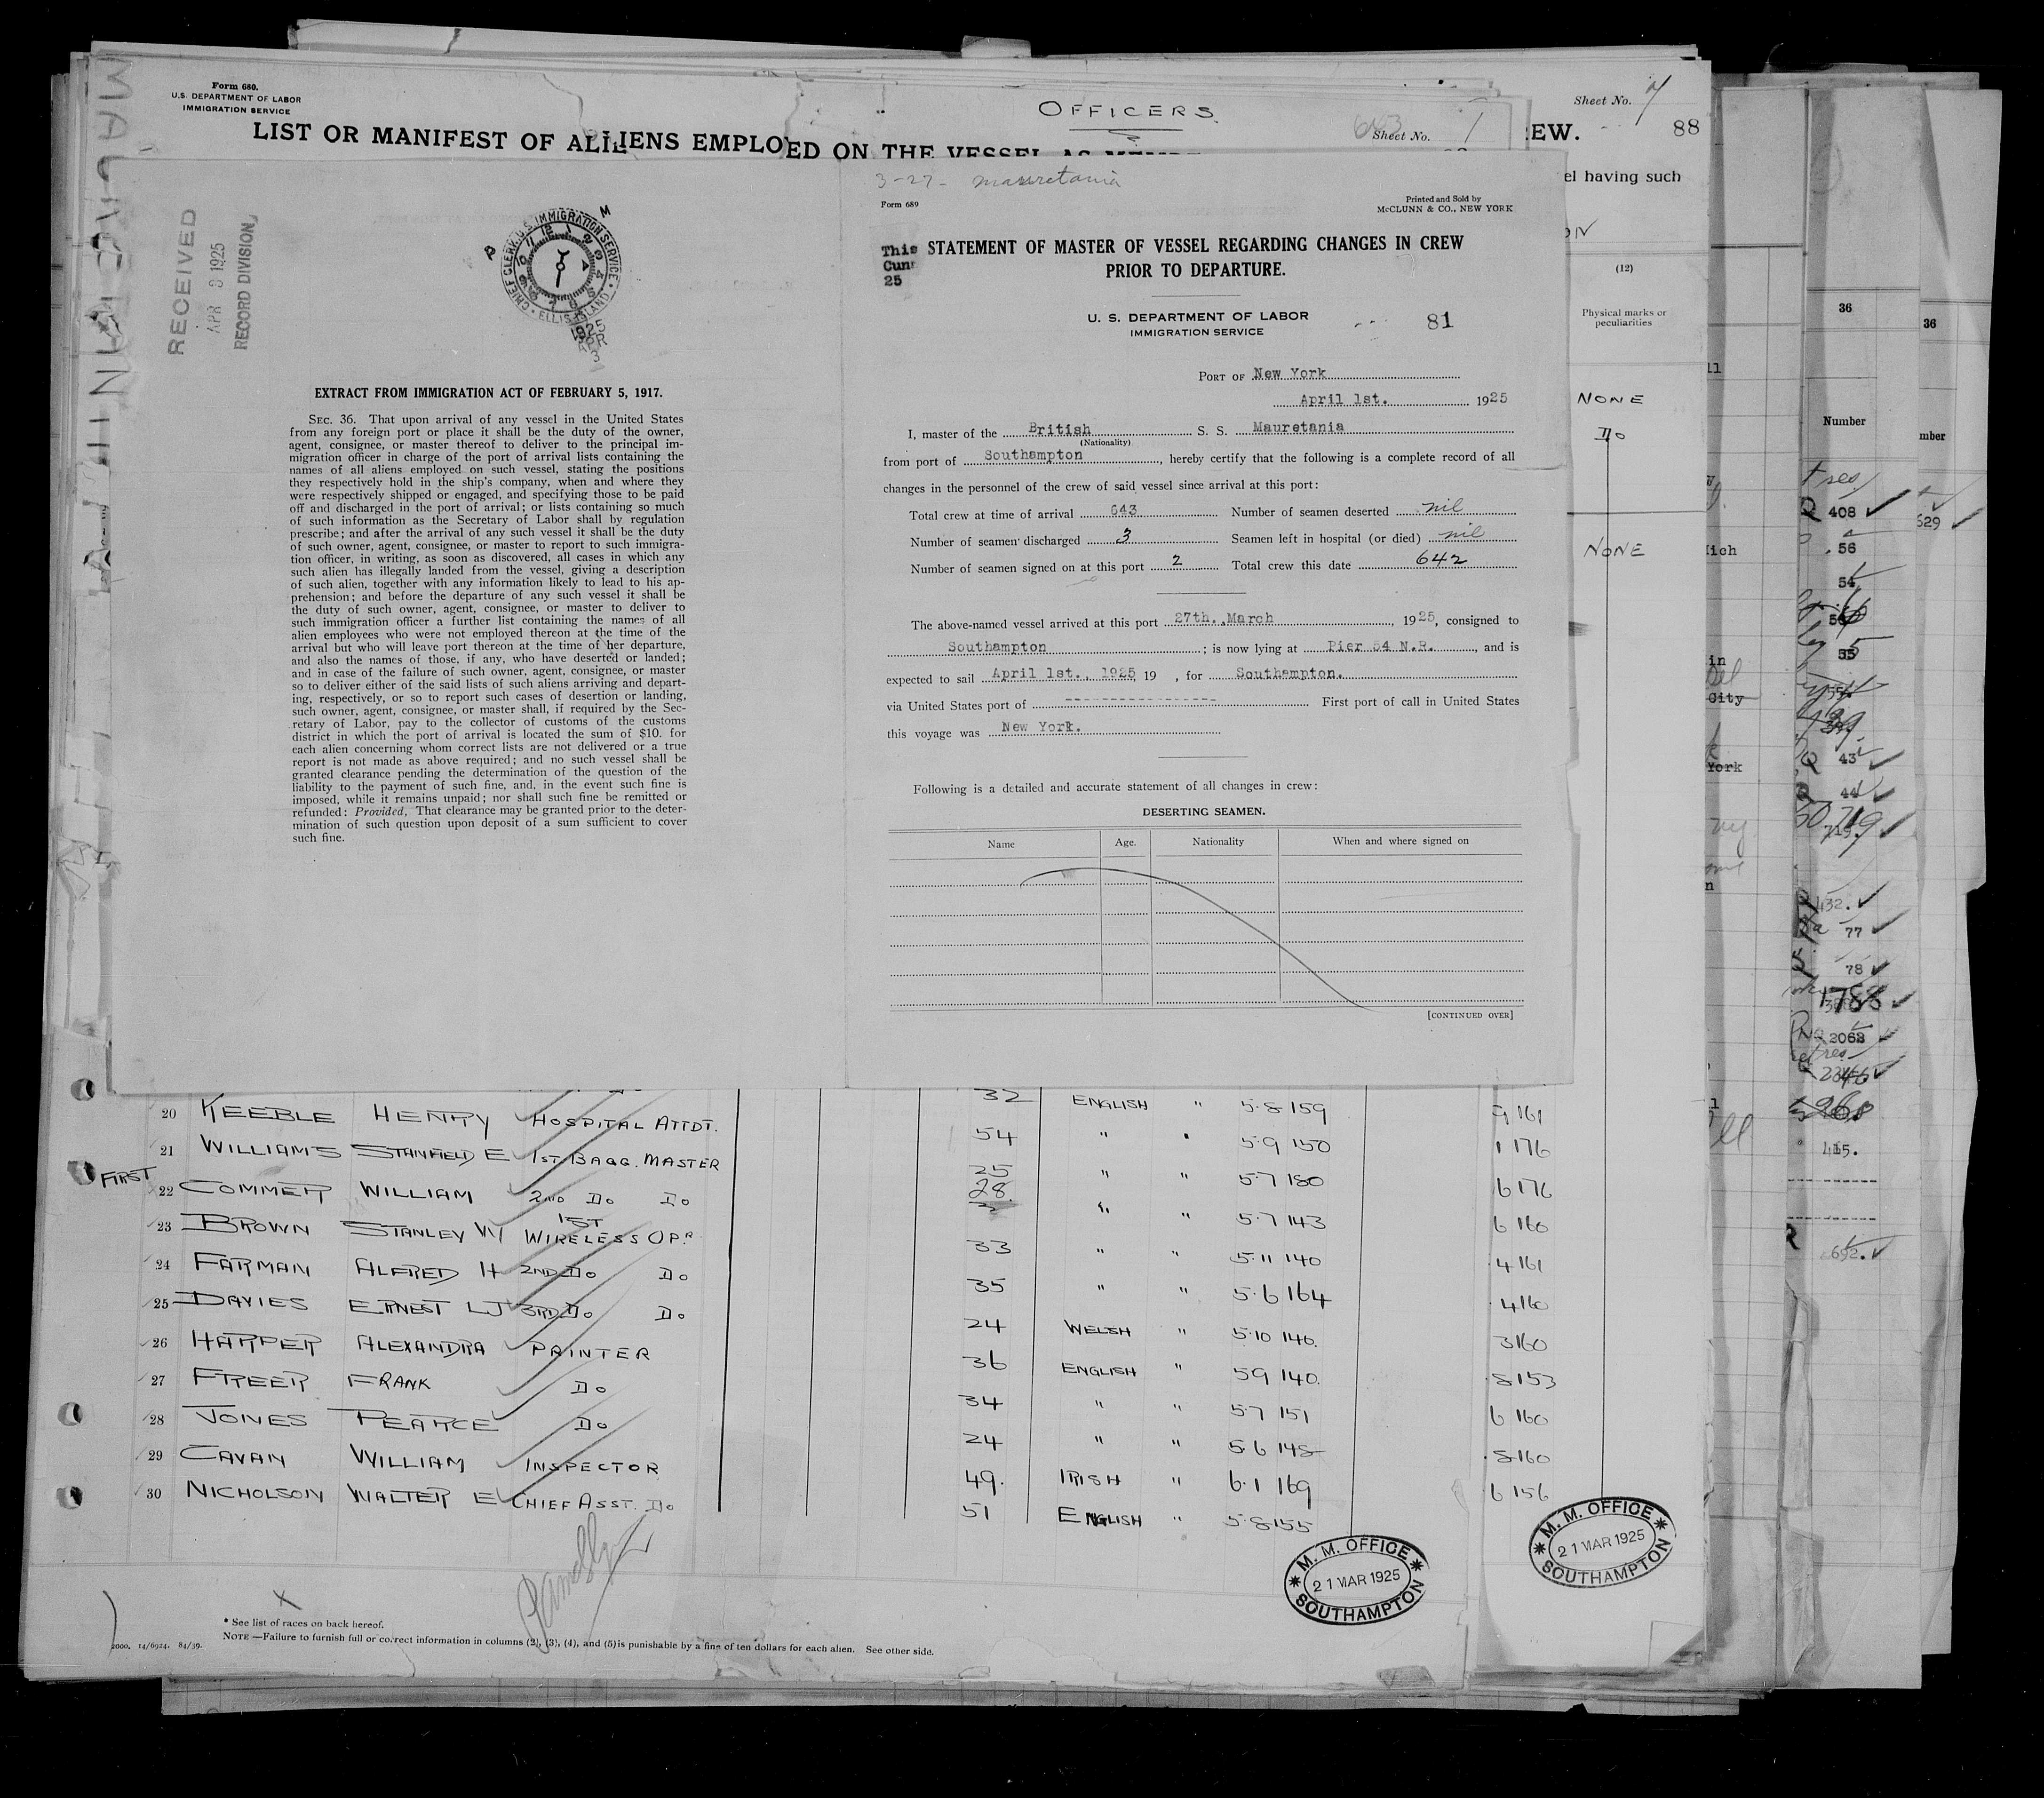 Form 680.
U.S. DEPARTMENT OF LABOR
IMMIGRATION SERVICE
OFFICERS.
643
Sheet No. 1
LIST OR MANIFEST OF ALIENS EMPLOYED ON THE VESSEL AS
Sheet No.
EW.
88
el having such
(12)
Physical marks or
peculiarities
NONE
Do
NONE
RECEIVED
APR 3 1925
RECORD DIVISION
CHIEF CLERK, U.S. IMMIGRATION SERVICE
ELLIS ISLAND
P M
1925
APR
3
EXTRACT FROM IMMIGRATION ACT OF FEBRUARY 5, 1917.
SEC. 36. That upon arrival of any vessel in the United States
from any foreign port or place it shall be the duty of the owner,
agent, consignee, or master thereof to deliver to the principal im-
migration officer in charge of the port of arrival lists containing the
names of all aliens employed on such vessel, stating the positions
they respectively hold in the ship's company, when and where they
were respectively shipped or engaged, and specifying those to be paid
off and discharged in the port of arrival; or lists containing so much
of such information as the Secretary of Labor shall by regulation
prescribe; and after the arrival of any such vessel it shall be the duty
of such owner, agent, consignee, or master to report to such immigra-
tion officer, in writing, as soon as discovered, all cases in which any
such alien has illegally landed from the vessel, giving a description
of such alien, together with any information likely to lead to his ap-
prehension; and before the departure of any such vessel it shall be
the duty of such owner, agent, consignee, or master to deliver to
such immigration officer a further list containing the names of all
alien employees who were not employed thereon at the time of the
arrival but who will leave port thereon at the time of her departure,
and also the names of those, if any, who have deserted or landed;
and in case of the failure of such owner, agent, consignee, or master
so to deliver either of the said lists of such aliens arriving and depart-
ing, respectively, or so to report such cases of desertion or landing,
such owner, agent, consignee, or master shall, if required by the Sec-
retary of Labor, pay to the collector of customs of the customs
district in which the port of arrival is located the sum of $10. for
each alien concerning whom correct lists are not delivered or a true
report is not made as above required; and no such vessel shall be
granted clearance pending the determination of the question of the
liability to the payment of such fine, and, in the event such fine is
imposed, while it remains unpaid; nor shall such fine be remitted or
refunded: Provided, That clearance may be granted prior to the deter-
mination of such question upon deposit of a sum sufficient to cover
such fine.
3-27- Mauretania
Form 689
Printed and Sold by
McCLUNN & CO., NEW YORK
This
Cun
25
STATEMENT OF MASTER OF VESSEL REGARDING CHANGES IN CREW
PRIOR TO DEPARTURE.
U. S. DEPARTMENT OF LABOR
IMMIGRATION SERVICE
81
PORT OF New York
April 1st. 1925
I, master of the British S. S. Mauretania
(Nationality)
from port of Southampton, hereby certify that the following is a complete record of all
changes in the personnel of the crew of said vessel since arrival at this port:
Total crew at time of arrival 643 Number of seamen deserted nil
Number of seamen discharged 3 Seamen left in hospital (or died) nil
Number of seamen signed on at this port 2 Total crew this date 642
The above-named vessel arrived at this port 27th. March, 1925, consigned to
Southampton; is now lying at Pier 54 N.R., and is
expected to sail April 1st., 1925 19 , for Southampton.
via United States port of ----------------- First port of call in United States
this voyage was New York.
Following is a detailed and accurate statement of all changes in crew:
DESERTING SEAMEN.
Name Age. Nationality When and where signed on
[CONTINUED OVER]
32 ENGLISH " 5·8 159
20 KEEBLE HENRY HOSPITAL ATTDT. 54 " " 5·9 150
21 WILLIAMS STANFIELD E 1ST BAGG. MASTER 25 " " 5·7 180
FIRST
22 COMMER WILLIAM 2ND Do Do 28. " " 5·7 143
23 BROWN STANLEY W 1ST WIRELESS OPR 33 " " 5·11 140
24 FARMAN ALFRED H 2ND Do Do 35 " " 5·6 164
25 DAVIES ERNEST LJ 3RD Do Do 24 WELSH " 5·10 146.
26 HARPER ALEXANDRA PRINTER 36 ENGLISH " 59 140.
27 FREER FRANK Do 34 " " 5·7 151
28 JONES PEARCE Do 24 " " 5·6 148
29 CAVAN WILLIAM INSPECTOR 49. IRISH " 6·1 169
30 NICHOLSON WALTER E CHIEF ASST. Do 51 ENGLISH " 5·8·155
9 161
1 176
6 176
6 160
4 161
4 160
3 160
8 153
6 160
8 160
6 156
M. M. OFFICE
21 MAR 1925
SOUTHAMPTON
M. M. OFFICE
21 MAR 1925
SOUTHAMPTON
* See list of races on back hereof.
NOTE —Failure to furnish full or correct information in columns (2), (3), (4), and (5) is punishable by a fine of ten dollars for each alien. See other side.
2000. 14/6924. 84/39.
36
Number
408
56
54
35
43
44
719
432.
77
78
1788
2063
415.
692.
36
mber
629
City
York